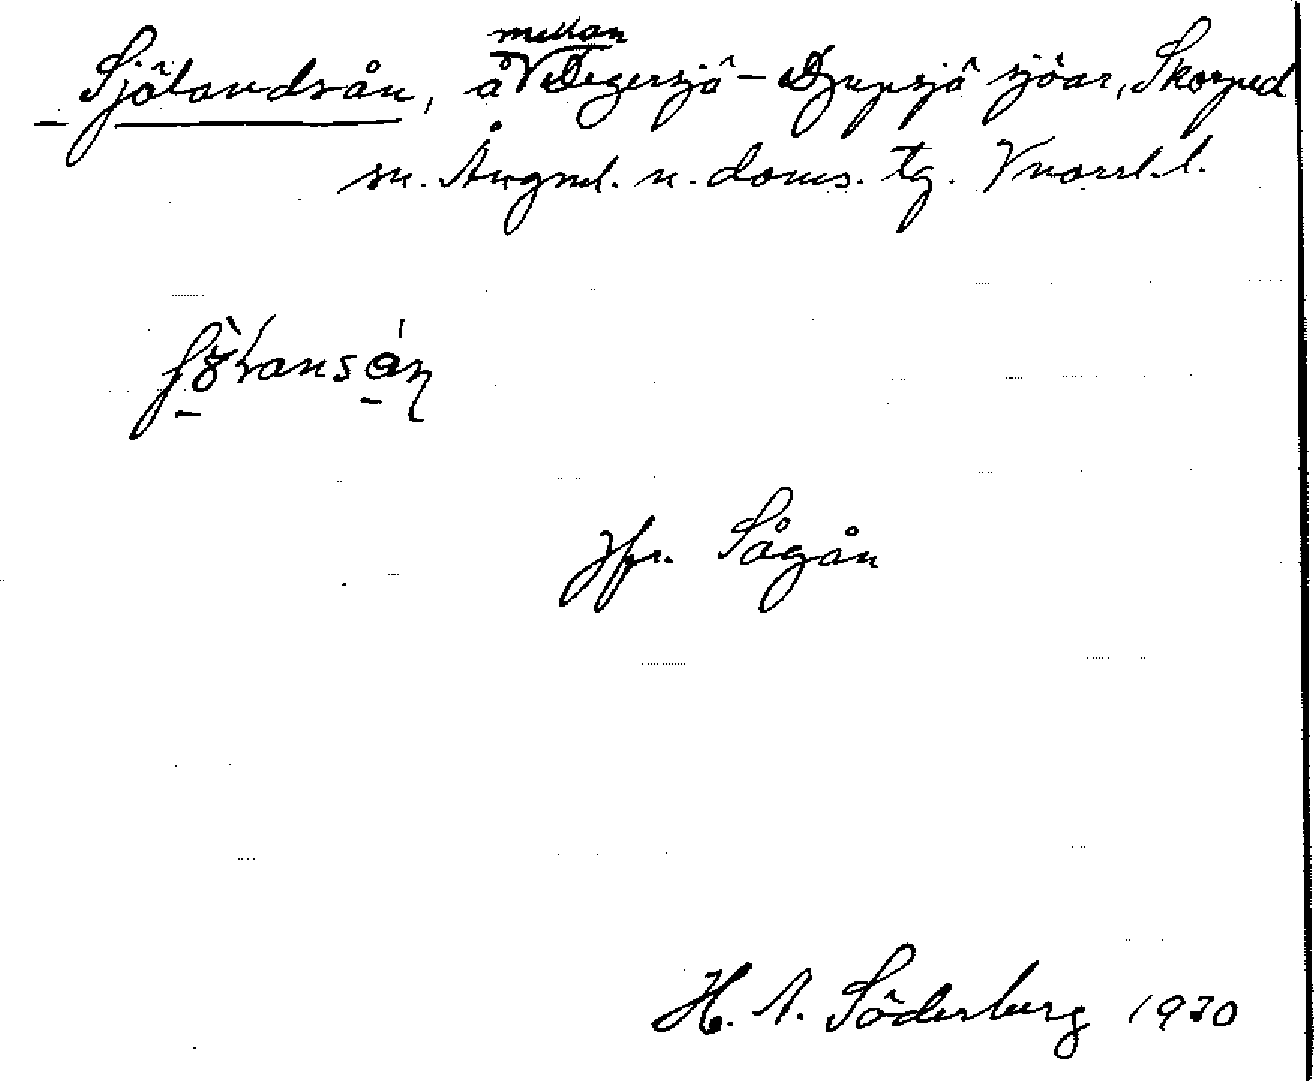 Sjölandsån, å mellan Degersjö – Djupsjö sjöar, Skorped
sn. Ångml. n. doms. tg. Vnorrl. l.
Jfr. Sågån
H. A. Söderberg 1930